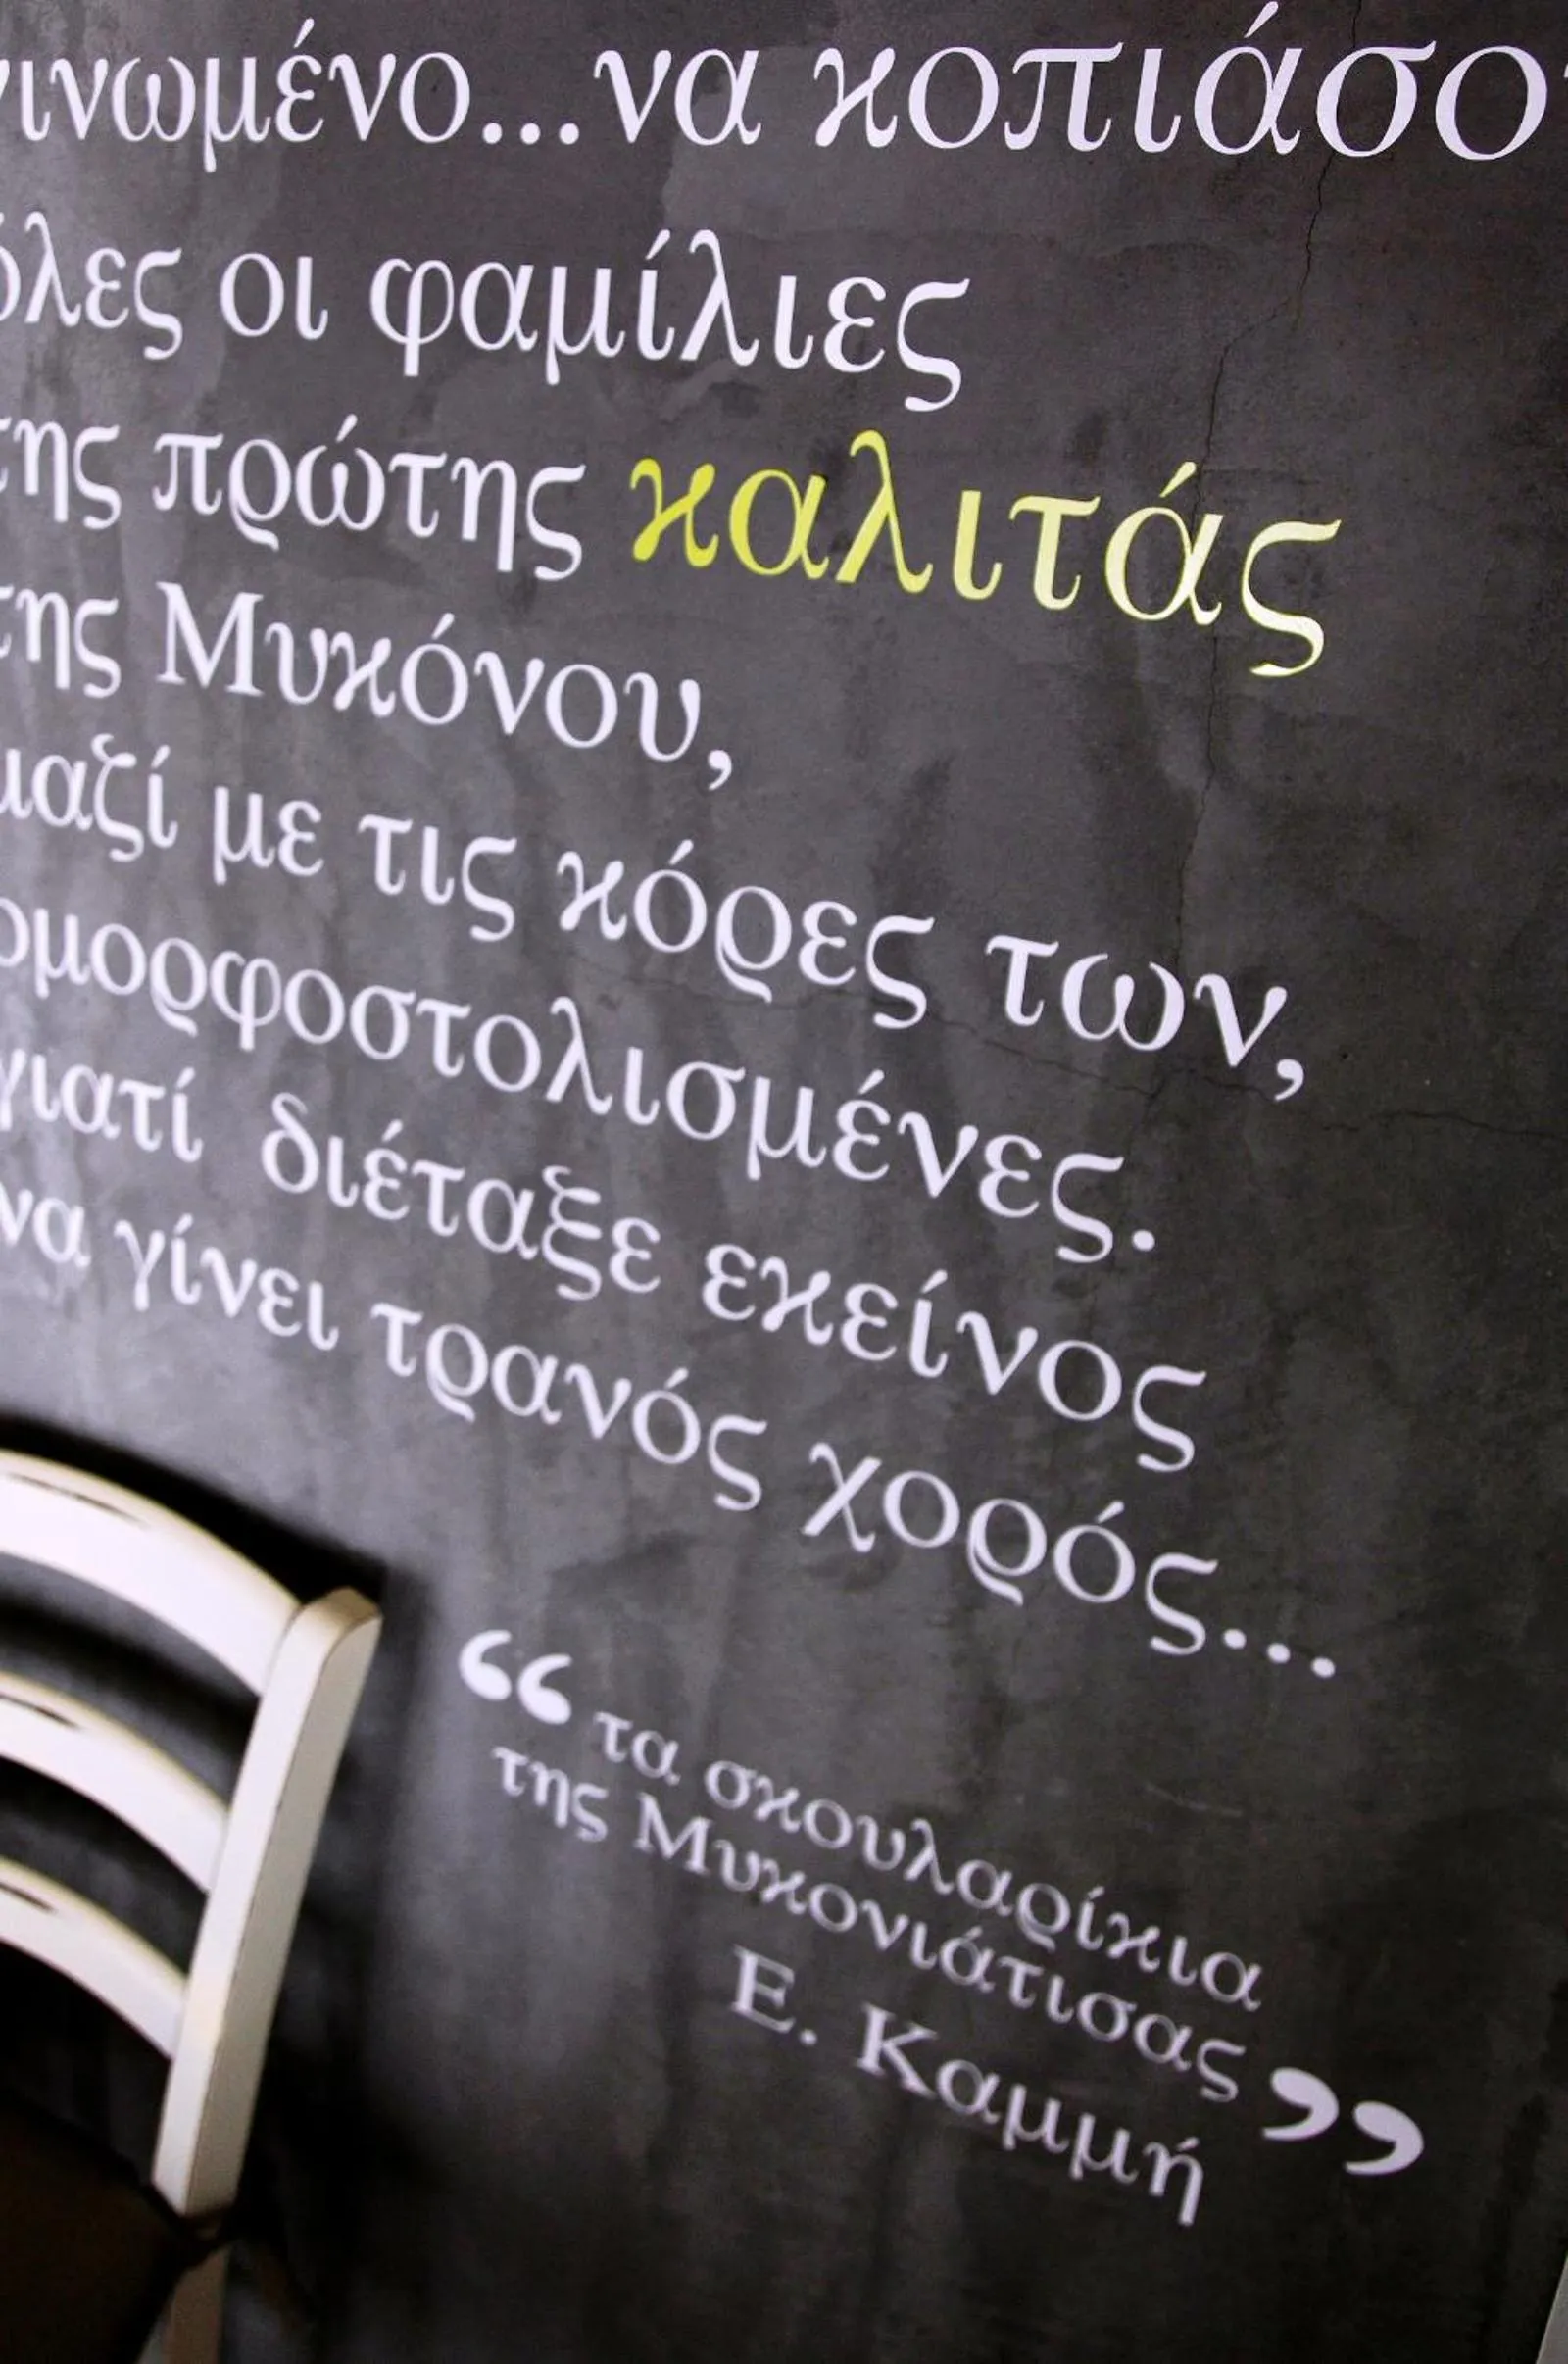 να
όλες οι φαμίλιες
της πρώτης καλιτάς
της Μυκόνου,
μαζί με τις κόρες των,
ομορφοστολισμένες.
γιατί διέταξε εκείνος
να γίνει τρανός χορός...
“τα σκουλαρίκια
της Μυκονιάτισας”
Ε. Καμμή